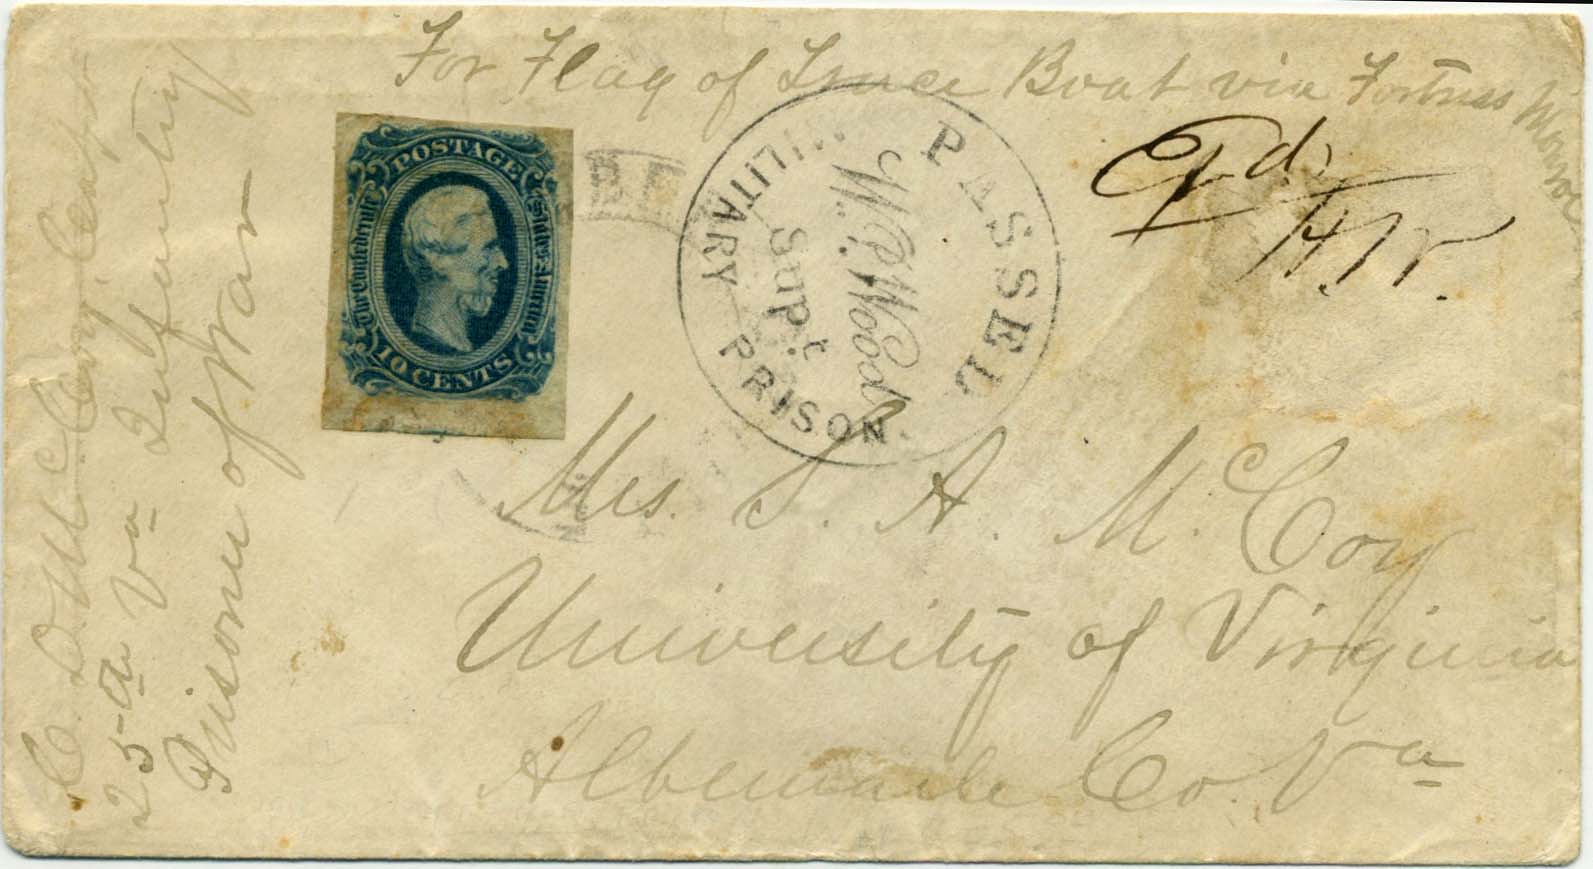 For Flag of Truce Boat via Fortress Monroe
Exd
POSTAGE
The Confederate States America
10 CENTS
PASSED
W.P. Wood
Sup.t
MILITARY PRISON.
Mrs. S. A. McCoy
University of Virginia
Albemarle Co. Va
25th Va Infantry
Prisoner of War